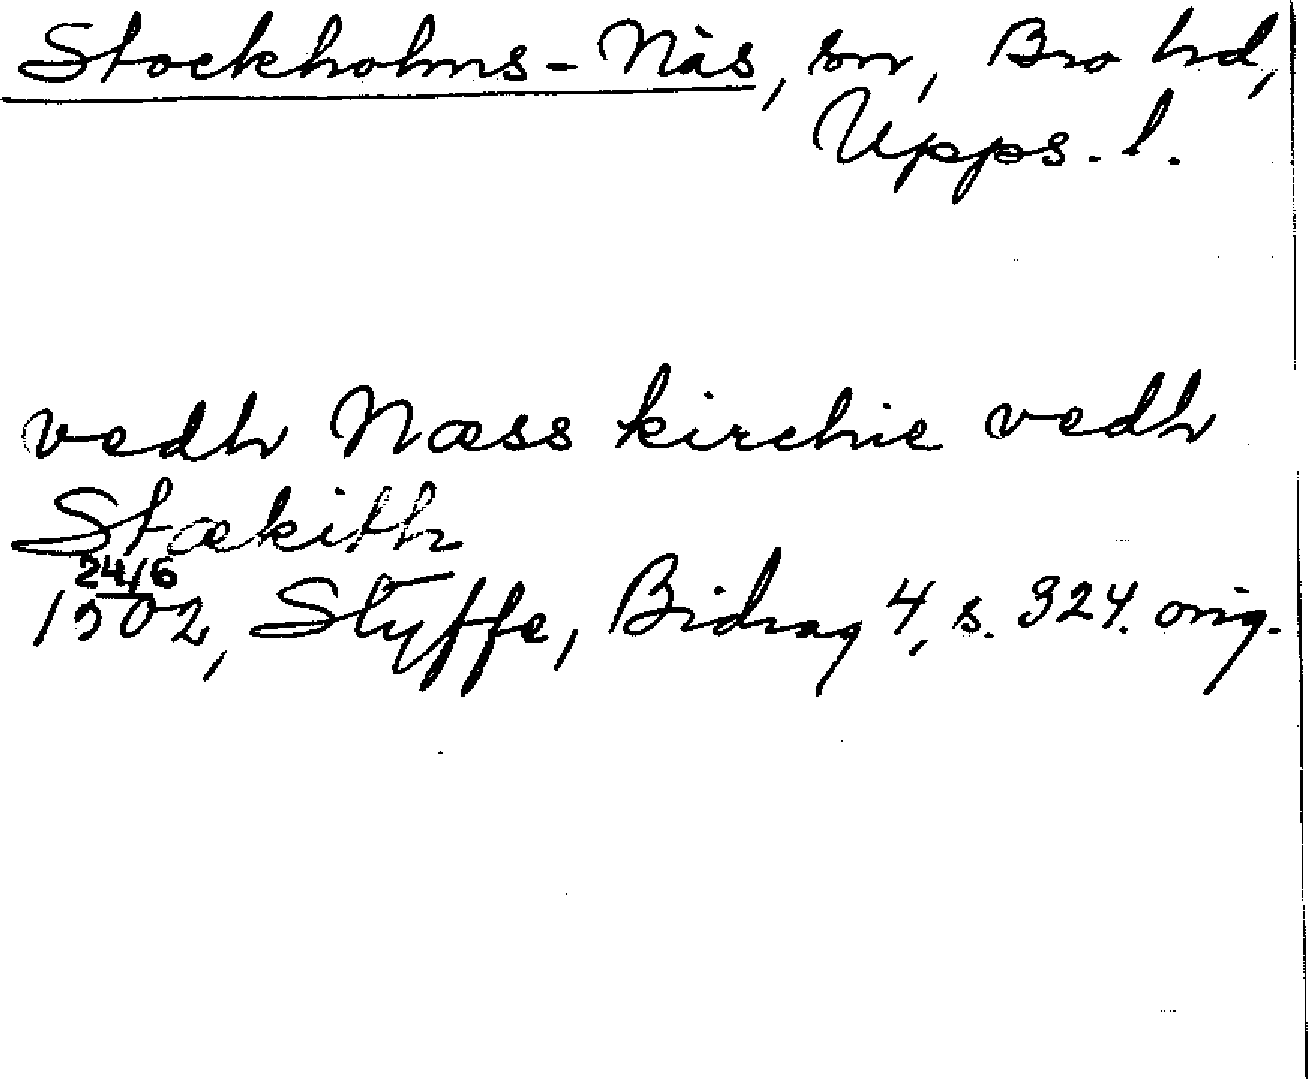 Stockholms-Näs, sn, Bro hd,
Upps. l.
vedh Næss kirchie vedh
Stækith
24/6
1502, Styffe, Bidrag 4, s. 324. orig.